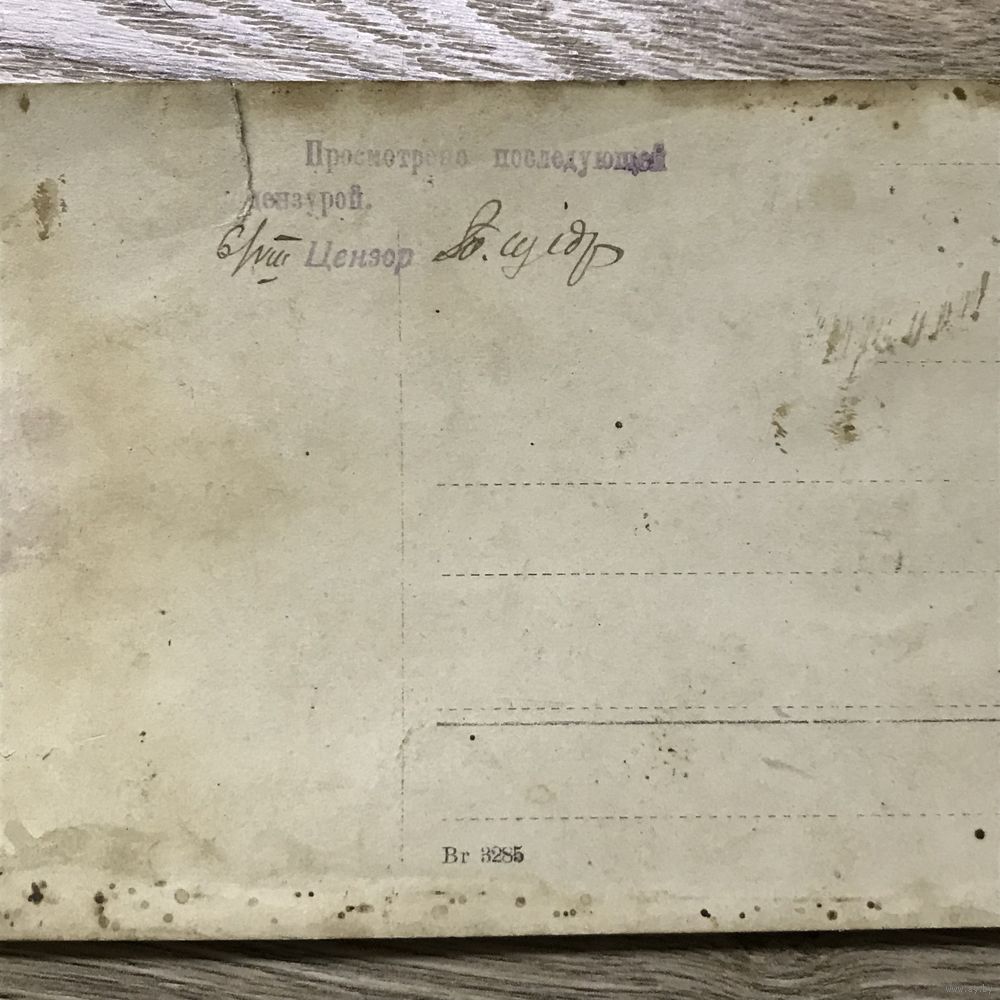 Просмотрено последующей
цензурой.
6/VIII Цензор
Br 3285
www.ay.by